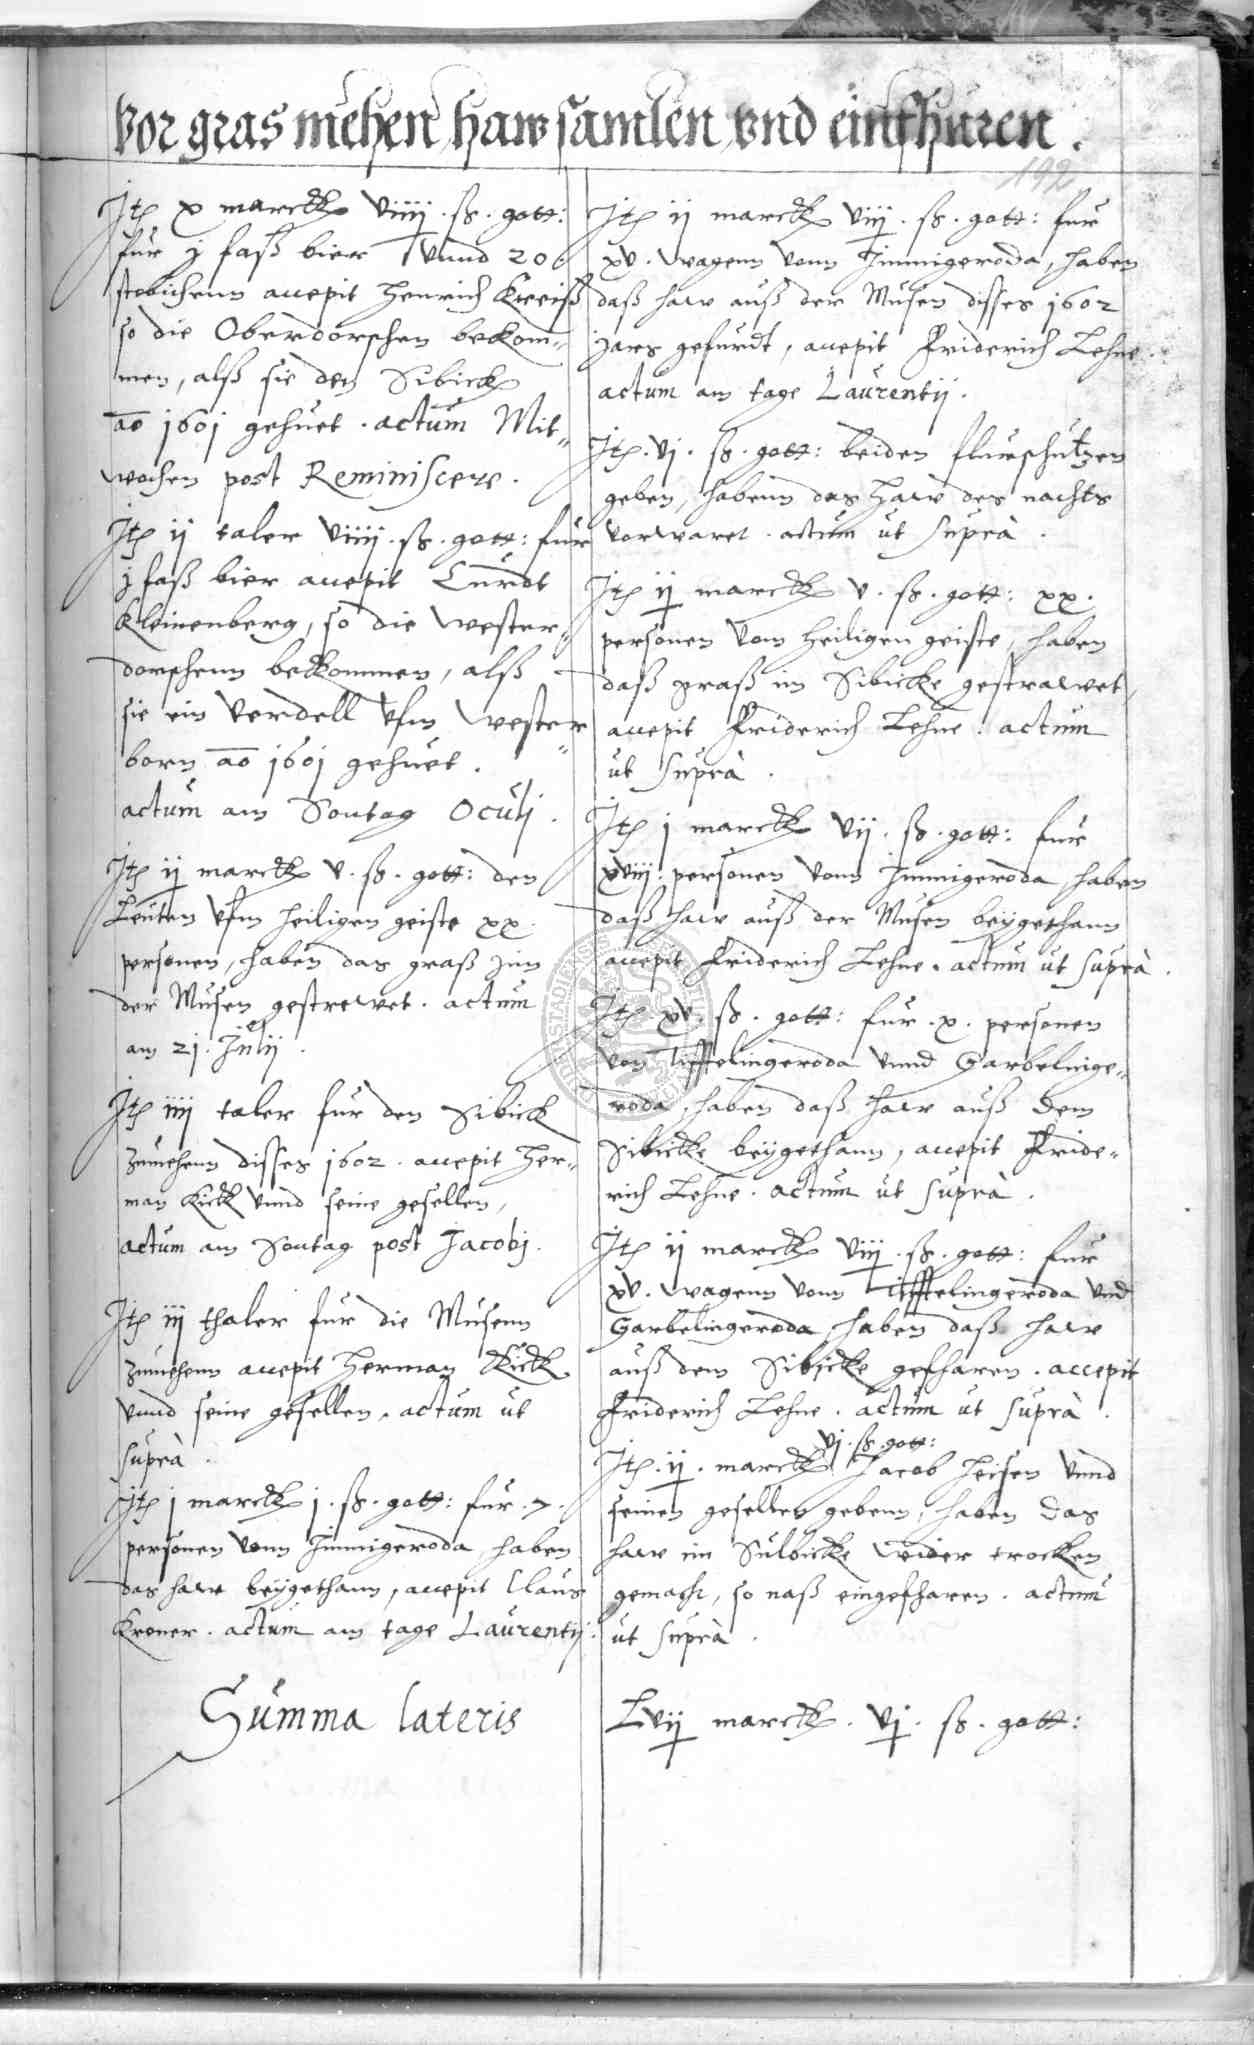 Vor gras mehen, haw samlen, vnd einfhuren.
192
Itē x marckͤ viiij. ß. gott:
fur j faß bier vnnd 20
stobichenn accepit Henrich Kreiß
so die Oberdorschen bekom=
men, alß sie den Sibick
ao 1601 gehuet. actum Mit=
wochen post Reminiscere.
Itē ij taler viiij. ß. gott: fur
j faß bier accepit Curdt
Kleinenberg, so die wester=
dorschenn bekommen, alß
sie ein verdell vfm Wester=
born ao 1601 gehuet.
actum am Sontag Oculj.
Itē ij marck v. ß. gott: den
Leuten vfm heiligen geiste xx.
personen, haben das graß inn
der Musen gestrewet. actum
am 21. Julij.
Itē iiij taler fur den Sibick
zumehenn disses 1602. accepit Her=
man Kick vnnd seine gesellen,
actum am Sontag post Jacobj.
Itē iij thaler fur die Musenn
zumehenn accepit Herman Kick
vnnd seine gesellen, actum ut
suprà.
Itē j marck j. ß. gott: fur .7.
personen vonn Immigeroda, haben
das haw beygethann, accepit Claus
Kroner. actum am tage Laurentij.
Itē ij marck viij. ß. gott: fur
xv. wagenn vonn Immigeroda, haben
daß haw auß der Musen disses 1602
jars gefurdt, accepit Friderich Lehne.
actum am tage Laurentij.
Itē. vj. ß. gott: beiden flurschutzen
geben, habenn das haw des nachts
vorwaret. actum ut suprà.
Itē ij marck v. ß. gott: xx.
personen vom heiligen geiste, haben
daß graß im Sibicke gestrawet,
accepit Friderich Lehne. actum
ut suprà.
Itē j marck vij. ß. gott: fur
xviij. personen vonn Immigeroda, haben
daß haw auß der Musen beygethann
accepit Friderich Lehne. actum ut suprà.
Itē. xv. ß. gott: fur .x. personen
von Tiffelingeroda vnnd Garbelinge=
roda, haben daß haw auß dem
Sibicke beygethann, accepit Fride=
rich Lehne. actum ut suprà.
Itē ij marck viij. ß. gott: fur
xv. wagenn vonn Tiffelingeroda vnd
Garbelingeroda, haben daß haw
auß dem Sibicke gefharen. accepit
Friderich Lehne. actum ut suprà.
vj. ß. gott:
Itē. ij. marck Jacob Heisen vnnd
seinen gesellen gebenn, haben das
haw im Sulbicke wider trocken
gemacht, so naß eingefharen. actum
ut suprà.
Summa lateris
Lvij marck. vj. ß. gott: